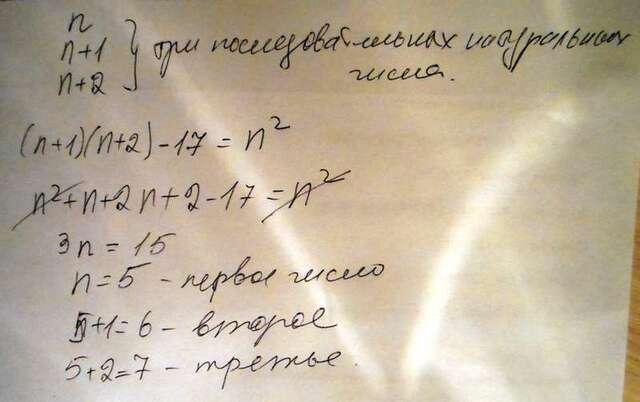 n
n+1 } три последовательных натуральных
n+2 числа.
(n+1)(n+2)-17=n²
n²+n+2n+2-17=n²
3n=15
n=5 - первое число
5+1=6 - второе
5+2=7 - третье.